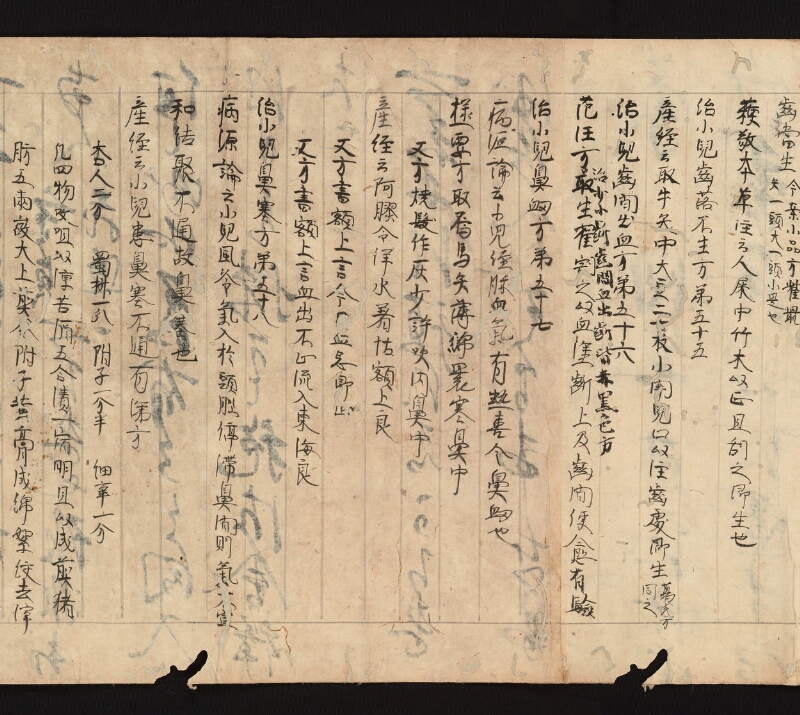 歯當生 今案小品方
矢一頭大一頭小是也
蘇敬本草注云人屎中竹木以正旦刮之即生也
治小兒歯落不生方第五十五
産経云取牛矢中大豆二七枚小開兒口以注歯處即生
同之
治小兒歯間出血方第五十六
治少小齗歯間血出齗皆赤黒色方
范汪方取生雀割之以血塗齗上及歯間便愈有驗
治小兒鼻衄方第五十七
病源論云小兒経脉血氣有熱喜令鼻衄也
極要方取㕝馬矢薄綿裹塞鼻中
又方焼髮作灰少許吹内鼻中
産経云阿膠令浄水着怗額上良
又方書額上言今
又方書額上言血出不止流入東海良
治小兒鼻塞方第五十八
病源論云小兒風冷氣入於頭脳停滞鼻間則氣不宣
和結聚不通故鼻塞也
産経云小兒患鼻塞不通有涕方
杏人二分 蜀椒一分 附子一分半 細辛一分
凡四物㕮咀以淳苦酒五合漬一宿明旦以成煎猪
肪五兩微火上煎以附子